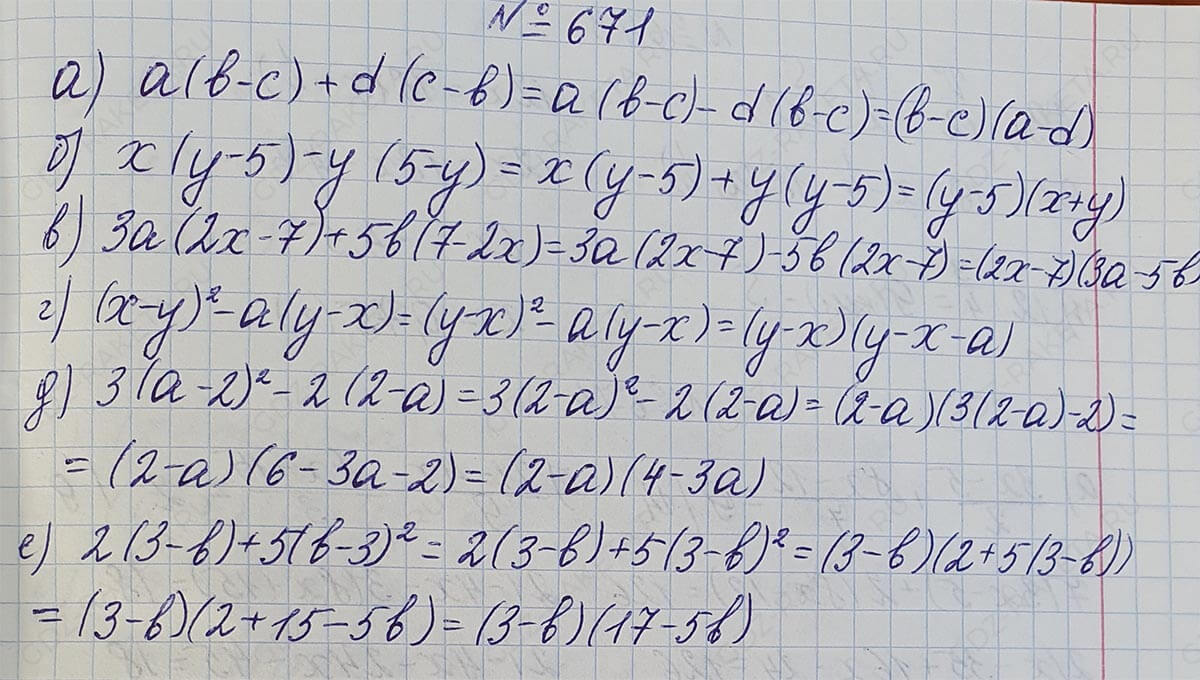 № 671
а) a(b-c)+d(c-b)=a(b-c)-d(b-c)=(b-c)(a-d)
б) x(y-5)-y(5-y)=x(y-5)+y(y-5)=(y-5)(x+y)
в) 3a(2x-7)+5b(7-2x)=3a(2x-7)-5b(2x-7)=(2x-7)(3a-5b)
г) (x-y)²-a(y-x)=(y-x)²-a(y-x)=(y-x)(y-x-a)
д) 3(a-2)²-2(2-a)=3(2-a)²-2(2-a)=(2-a)(3(2-a)-2)=
=(2-a)(6-3a-2)=(2-a)(4-3a)
е) 2(3-b)+5(b-3)²=2(3-b)+5(3-b)²=(3-b)(2+5(3-b))
=(3-b)(2+15-5b)=(3-b)(17-5b)